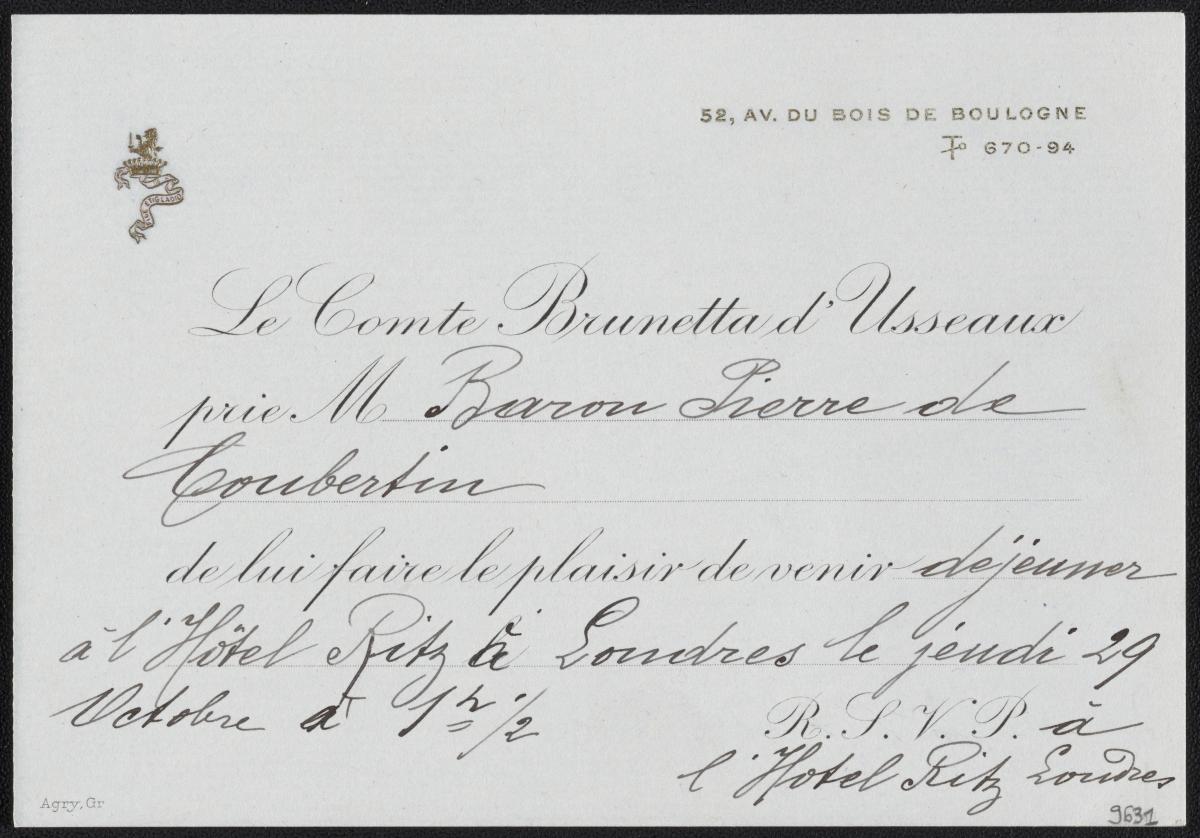 52, AV. DU BOIS DE BOULOGNE
670-94
Le Comte Brunetta d'Usseaux
prie M Baron Pierre de
Coubertin
de lui faire le plaisir de venir déjeuner
à l'Hôtel Ritz à Londres le jeudi 29
Octobre à 1 h 1/2
R. S. V. P. à
l'Hotel Ritz Londres
Agry, Gr
9631